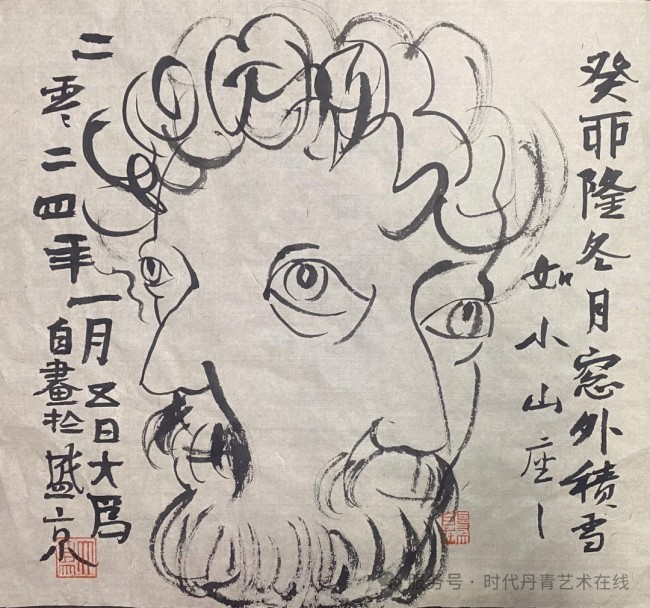 癸卯隆冬月窓外積雪
如小山座
二零二四年一月五日大爲
自畫於盛京
服务号 · 时代丹青艺术在线